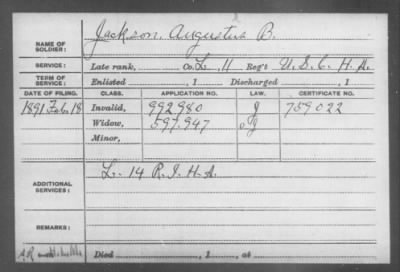 NAME OF SOLDIER: Jackson, Augustus B.
SERVICE: Late rank, Co. L, 11 Reg't U.S.C.H.A.
TERM OF SERVICE: Enlisted , 1 Discharged , 1
DATE OF FILING. CLASS. APPLICATION NO. LAW. CERTIFICATE NO.
1891, Feb. 18 Invalid, 992980 J 759022
Widow, 597.947
Minor,
ADDITIONAL SERVICES: L. 14 R.I.H.A.
REMARKS:
Died , 1 , at